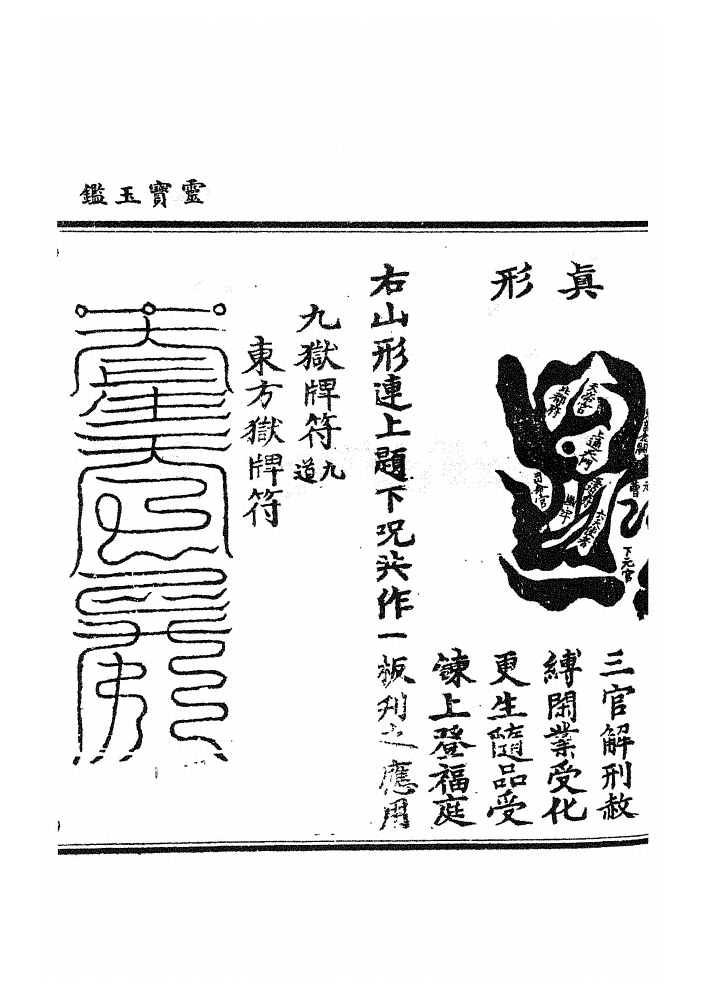 靈寶玉鑑
眞形
下元官
三官解刑赦
縛閑業受化
更生隨品受
鍊上登福庭
右山形連上題下咒共作一板刋之應用
九獄牌符九道
東方獄牌符